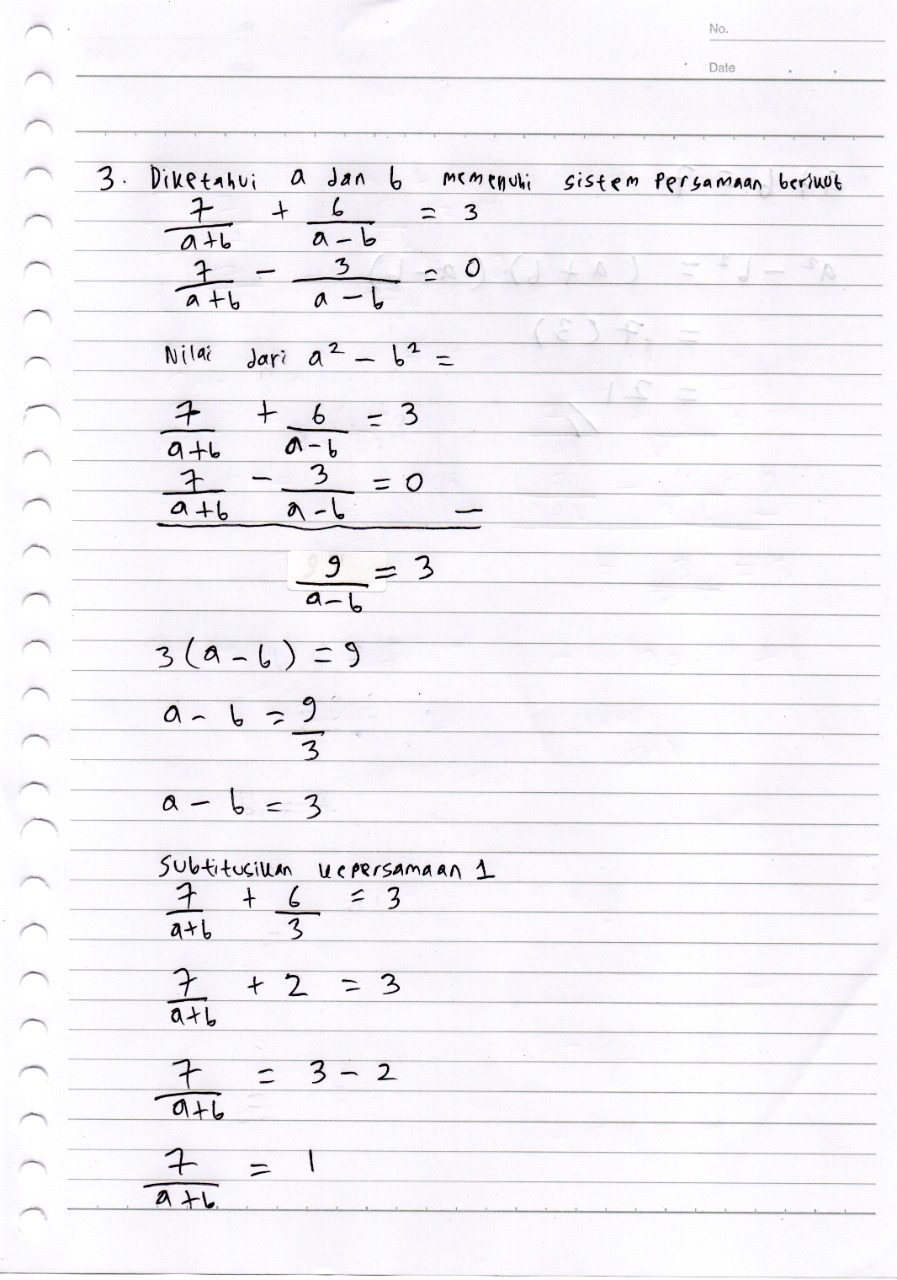 No.
Date
3. Diketahui a dan b memenuhi sistem persamaan berikut
7/(a+b) + 6/(a-b) = 3
7/(a+b) - 3/(a-b) = 0
Nilai dari a² - b² =
7/(a+b) + 6/(a-b) = 3
7/(a+b) - 3/(a-b) = 0 -
9/(a-b) = 3
3(a-b) = 9
a - b = 9/3
a - b = 3
Subtitusikan kepersamaan 1
7/(a+b) + 6/3 = 3
7/(a+b) + 2 = 3
7/(a+b) = 3 - 2
7/(a+b) = 1